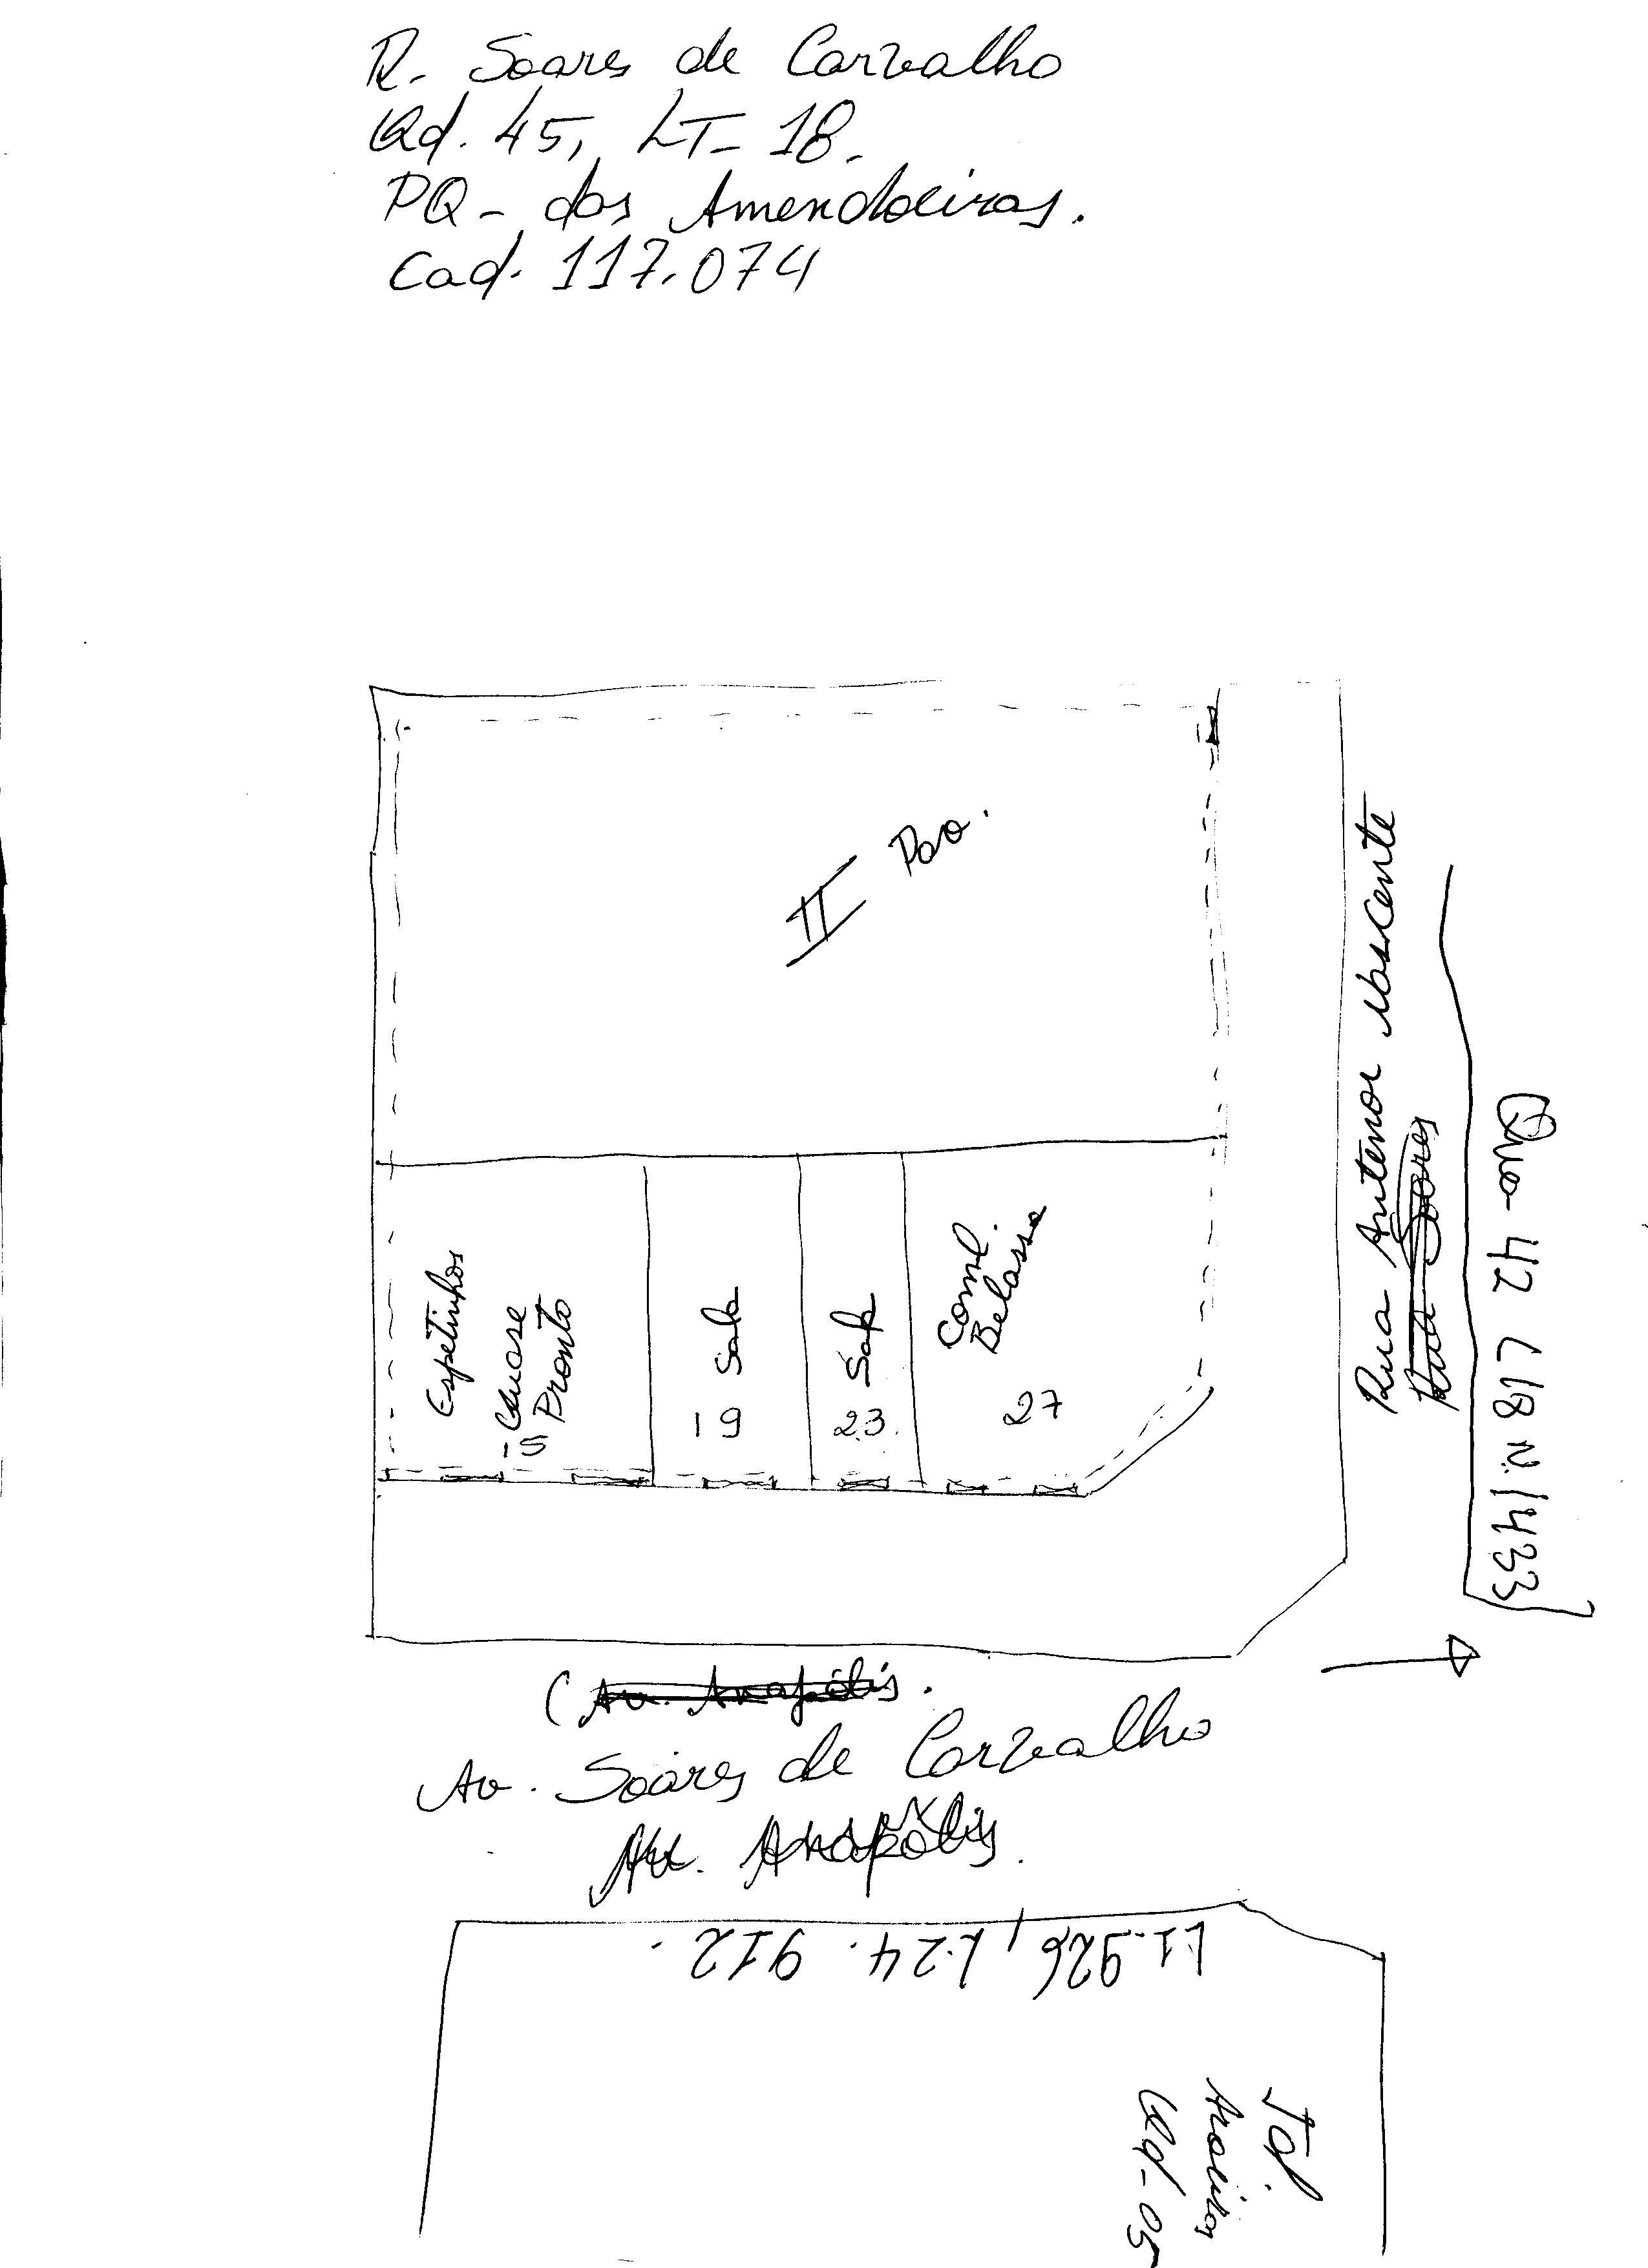 R. Soares de Carvalho
Qd. 45, LT- 18.
PQ- das Amendoeiras.
Cad. 117.074
II Pav.
Espetinhos
Quase
Pronto
15
Sala
19
Sala
23
Coml.
Belassa
27
Rua Antenor
Rua Soares
42 L18 N.1433
(Av. Anapólis.
Av. Soares de Carvalho
Av. Anapólis.
L1.926, L24. 912.
Jd.
Qd-05